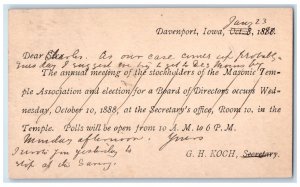 Jany 23
Davenport, Iowa, Oct. 3, 1888.
Dear Charles. As our case comes up probably
Tuesday I suggest we try & get to Des Moines by
The annual meeting of the stockholders of the Masonic Tem-
ple Association and election for a Board of Directors occurs Wed-
nesday, October 10, 1888, at the Secretary's office, Room 10, in
the Temple. Polls will be open from 10 A. M. to 6 P. M.
Monday afternoon. Yours
I wrote Jim yesterday to
stop at the Savery.
G. H. KOCH, Secretary.